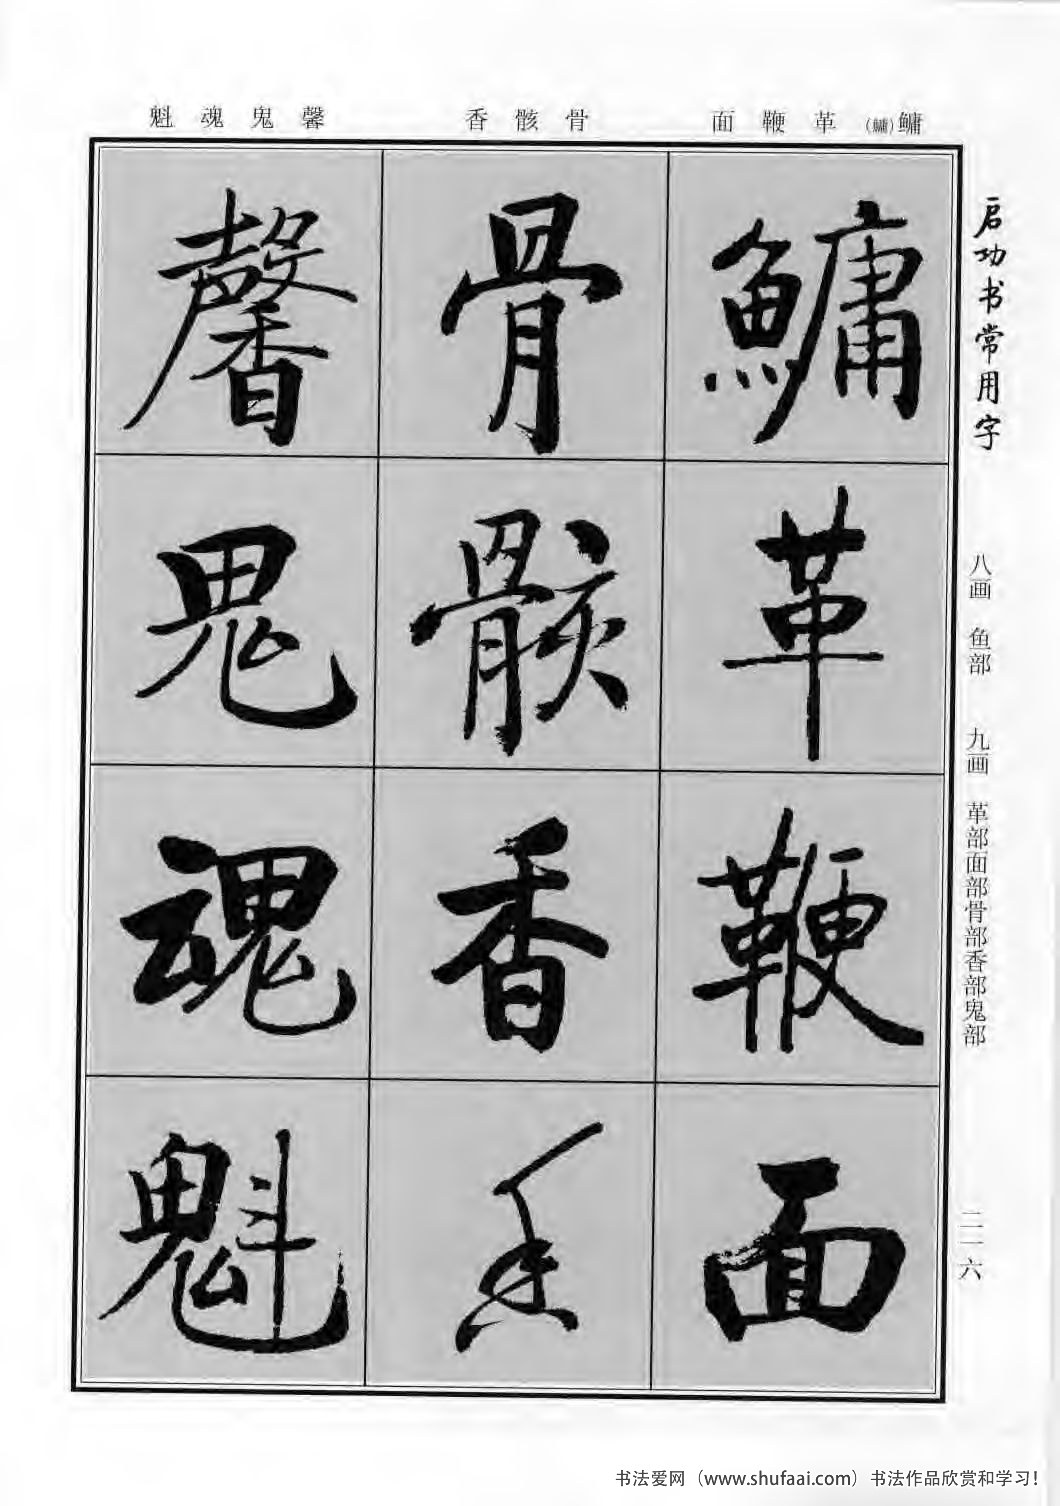 鳙(鱅) 革 鞭 面
骨 骸 香
馨 鬼 魂 魁
启功书常用字
八画 鱼部 九画 革部面部骨部香部鬼部
二一六
鱅
革
鞭
面
骨
骸
香
香
馨
鬼
魂
魁
书法爱网（www.shufaai.com）书法作品欣赏和学习!